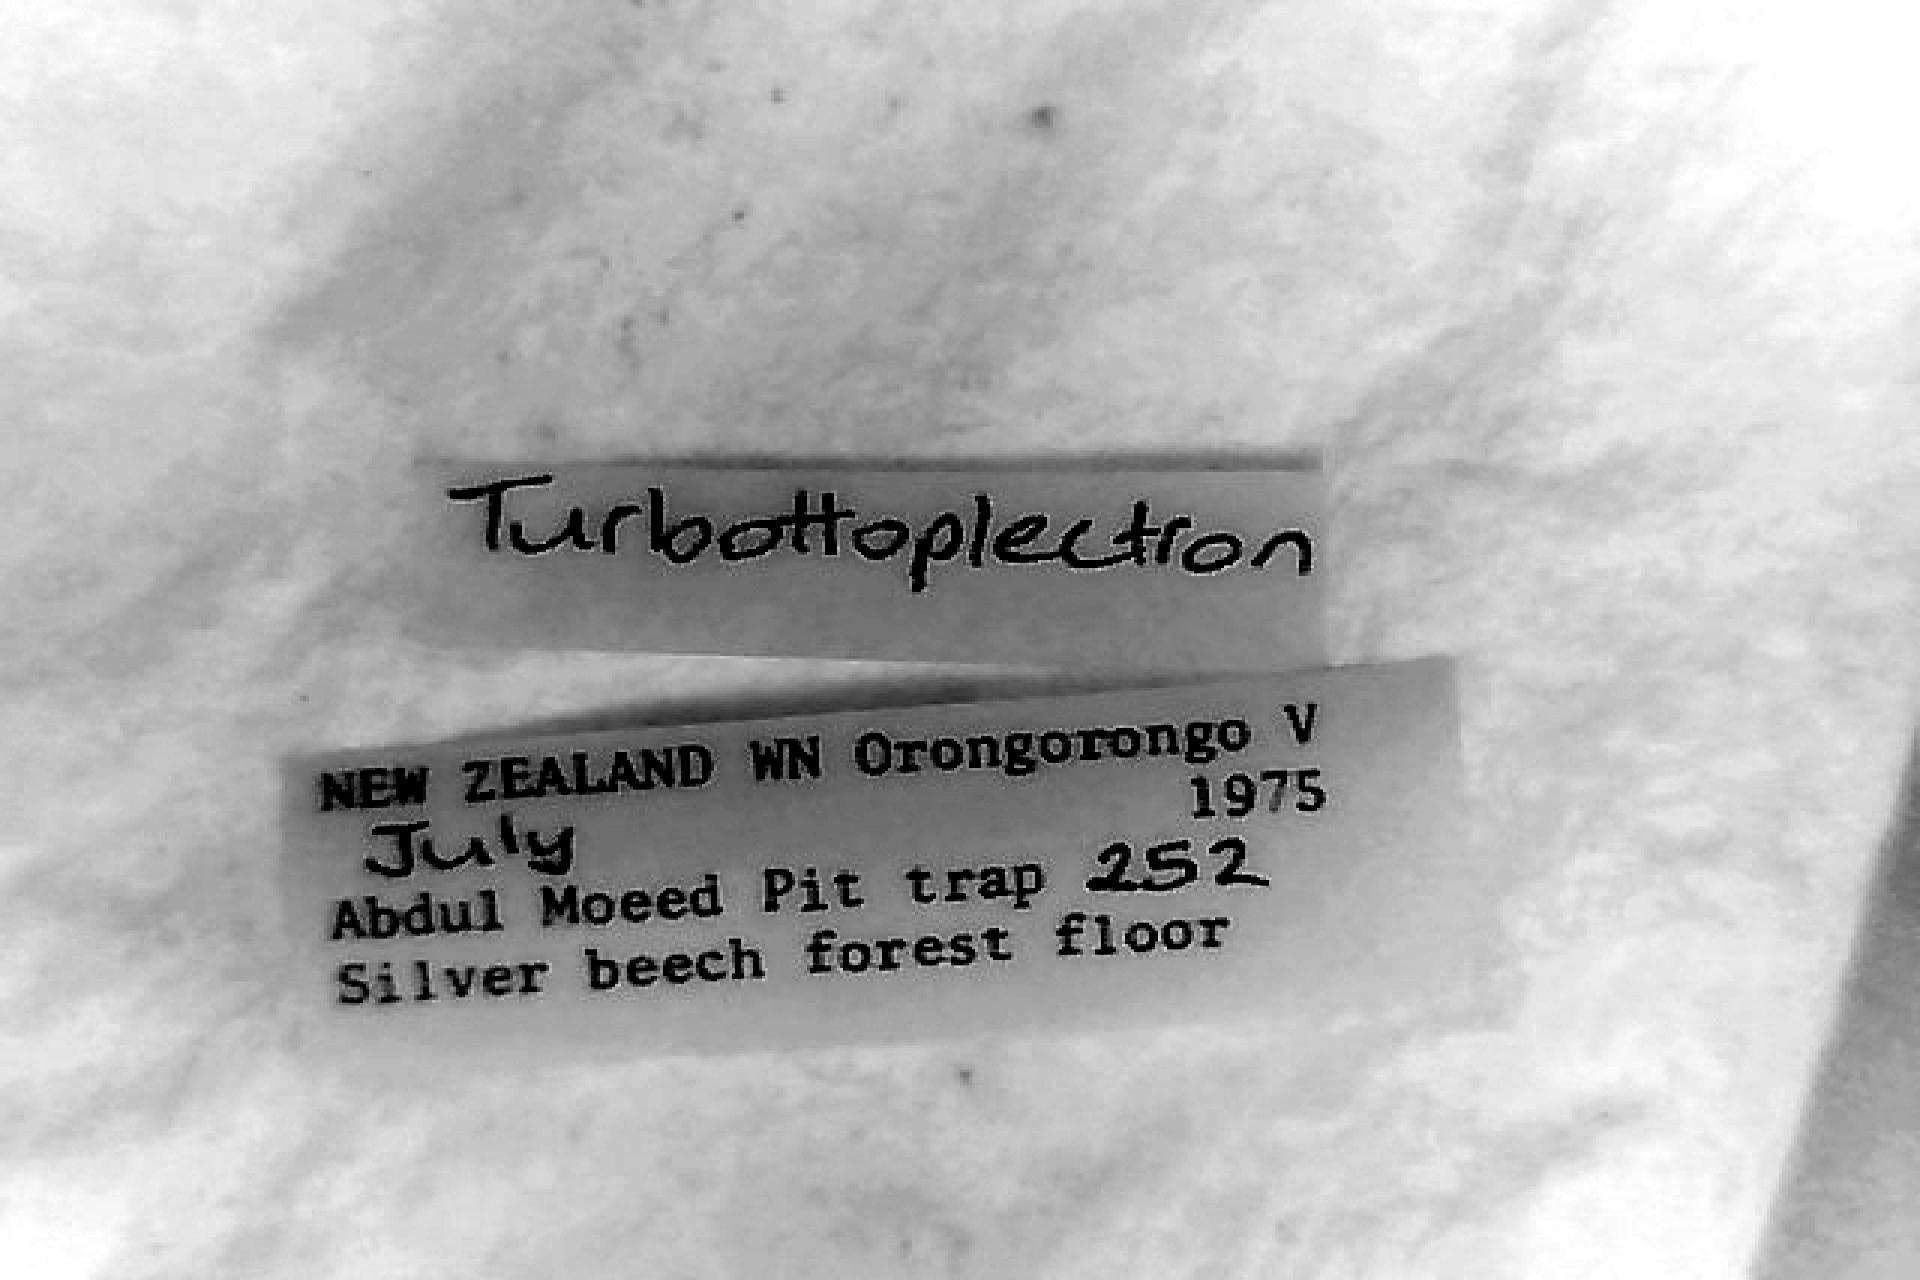 Turbottoplectron
NEW ZEALAND WN Orongorongo V
July 1975
Abdul Moeed Pit trap 252
Silver beech forest floor